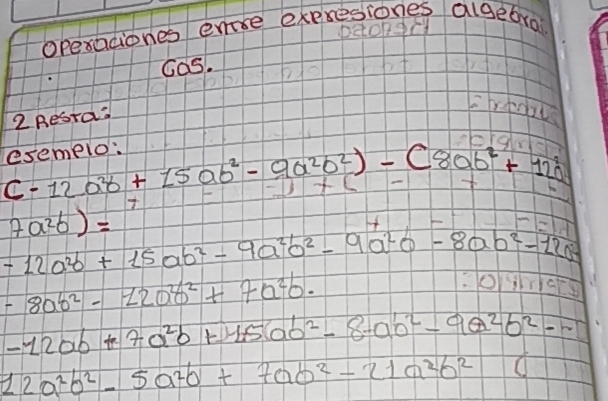 Operaciones entre expresiones algebrai
cas.
2 Resta:
esemplo:
(-12a²b + 15ab² - 9a²b²) - (8ab² + 12a
7a²b) =
-12a²b + 15ab² - 9a²b² - 9a²b - 8ab² - 12a
- 8ab² - 12a²b² + 7a²b.
-12ab + 7a²b + 15ab² - 8ab² - 9a²b² -
12a²b² - 5a²b + 7ab² - 21a²b² (